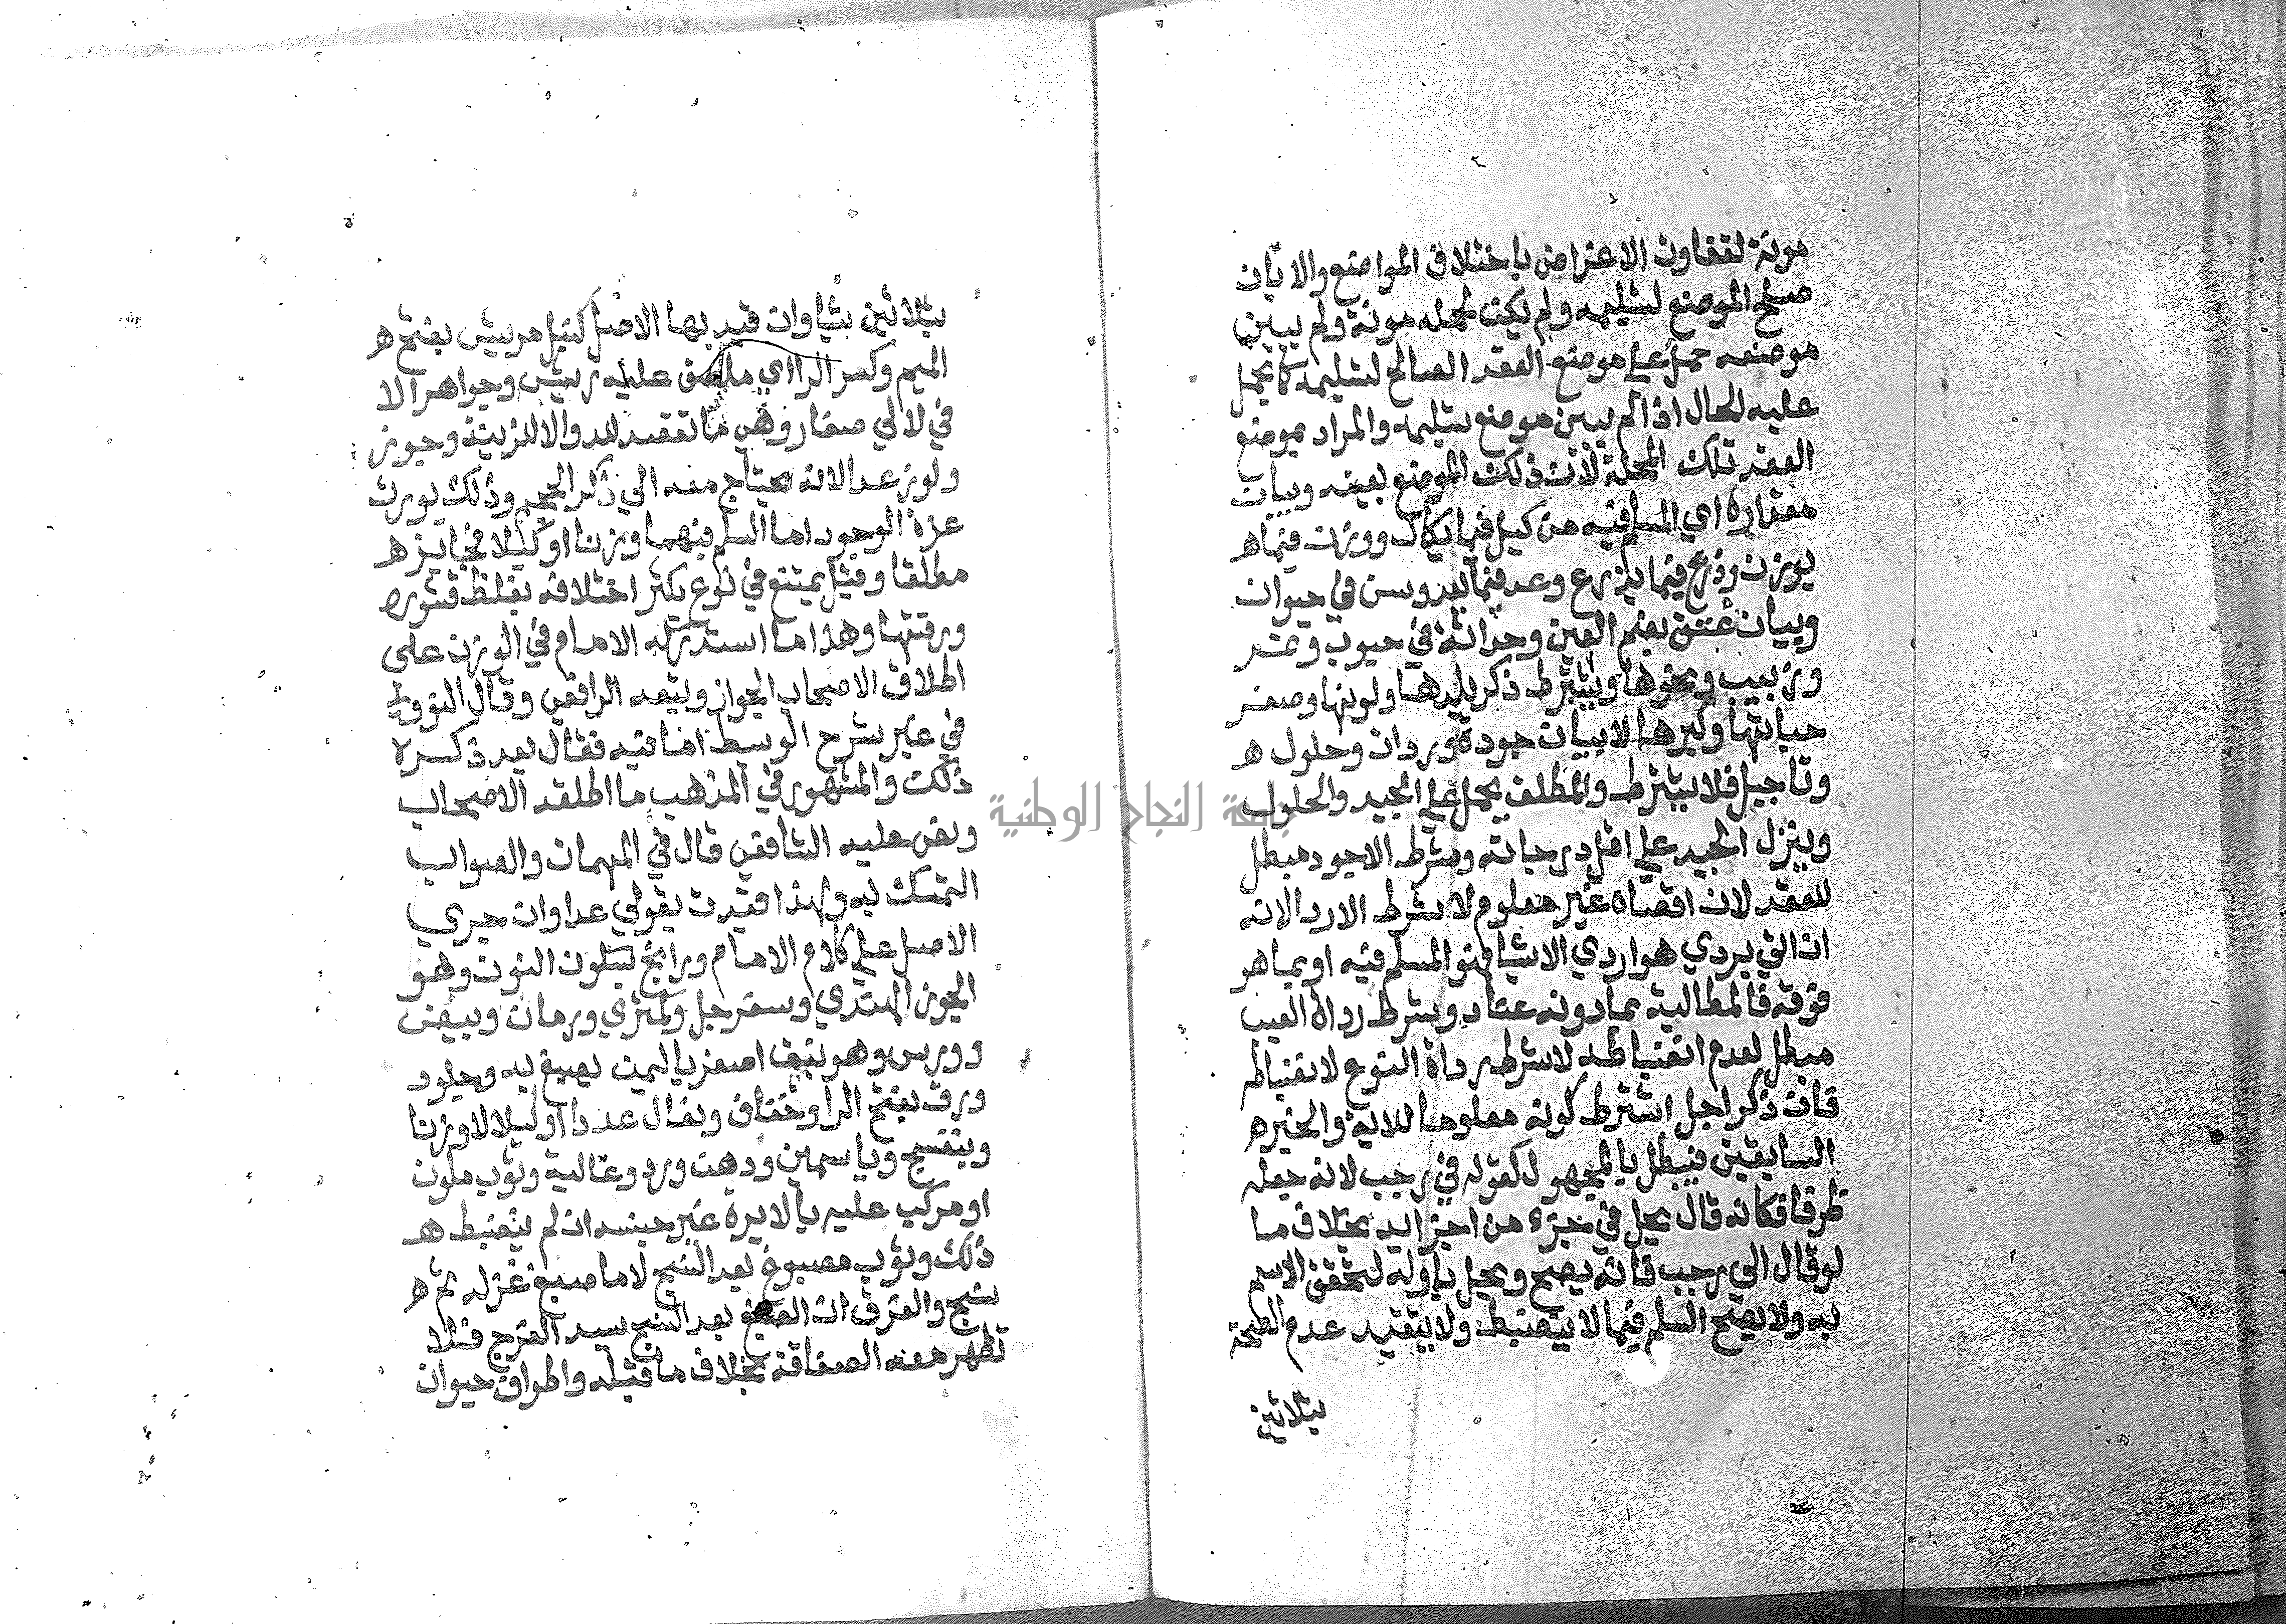 مونة لتفاوت الاغراض باختلاف المواضع والا بان
صلح الموضع لتسليمه ولم يكن لحمله مونة ولم يبين
موضعه حمل على موضع العقد الصالح لتسليمه كما يحمل
عليه الحال اذا لم يبين موضع تسليمه والمراد بموضع
العقد تلك المحلة لا ذات ذلك الموضع بعينه وبيان
مقداره اي المسلم فيه من كيل فيما يكال ووزن فيما ه
يوزن وذرع فيما يذرع وعد فيما يعد وسن في حيوان
وبيان عتق بضم العين وحداثة في حبوب وتمر
وزبيب ونحوها ويشترط ذكر بلدها ولونها وصغر
حباتها وكبرها لا بيان جودة ورداة وحلول ه
وتاجيل فلا يشترط والمطلق يحمل على الجيد والحلول
وينزل الجيد على اقل درجاته وشرط الاجود مبطل
للعقد لان اقصاه غير معلوم لا شرط الاردا لانه
ان اتي بردي هو اردي الاشيا فهو المسلم فيه او بما هو
فوقه فالمطالبة بما دونه عناد وشرط رداة العيب
مبطل لعدم انضباطه لا شرط رداة النوع لانضباطه
فان ذكر اجل اشترط كونه معلوما للاية والخبر ه
السابقين فيبطل بالمجهول كقوله في رجب لانه جعله
ظرفا فكانه قال يحل في جزء من اجزايه بخلاف ما
لو قال الي رجب فانه يصح ويحل باوله لتحقق الاسم
به ولا يصح السلم فيما لا ينضبط ولا يتقيد عدم الصحة
بثلاثين
بثلاثين بثياوان قيد بها الاصل كنبل مريش بفتح ه
الميم وكسر الرا اي ما لصق عليه ريش وجواهر الا
في لالي صغار وهي ما تقصد للدوا لا للزينة وجوز
ولوز عدا لانه يحتاج معه الي ذكر الحجم وذلك يورث
عزة الوجود اما السلم فيهما وزنا او كيلا فجايز ه
مطلقا وقيل يمتنع في نوع يكثر اختلافه بغلظ قشوره
ورقتها وهذا ما استدركه الامام في الوزن على
اطلاق الاصحاب الجواز وتبعه الرافعي وقال النووي
في غير شرح الوسيط انما فيه فقال بعد ذكره
ذلك والمشهور في المذهب ما اطلقه الاصحاب
ونص عليه الشافعي قال في المهمات والصواب
التمسك به ولهذا قيدت بقولي عدا وان جري
الاصل على كلام الامام ورانج بكسر النون وهو
الجوز الهندي وسفرجل وكمثري ورمان وبيض
وورس وهو نبت اصفر باليمن يصبغ به وجلود
ورق بفتح الرا وخفاف ونعال عددا او كيلا لا وزنا
وبنفسج وياسمين ودهن ورد وغالية وثوب ملون
او مركب عليه بالابرة غير جنسه ان لم ينضبط ه
ذلك وثوب مصبوغ بعد النسج لا ما صبغ غزله ثم ه
نسج والفرق ان الصبغ بعد النسج يسد الفرج فلا
تظهر معه الصفاقة بخلاف ما قبله واطراف حيوان
جامعة النجاح الوطنية